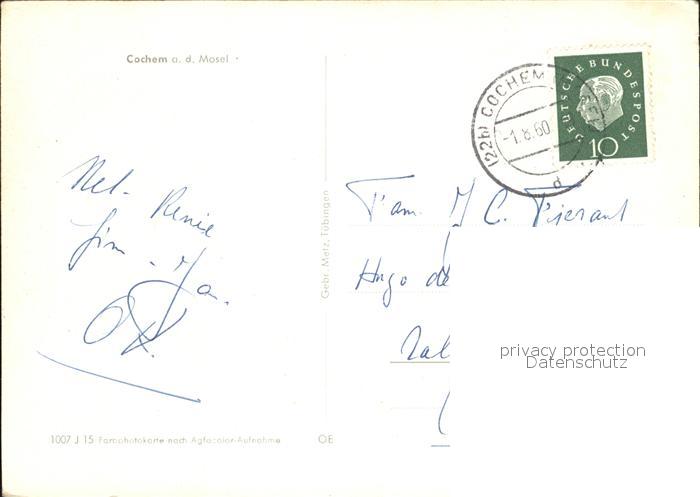 Cochem a. d. Mosel
(22b) COCHEM
-1.8.60
d
DEUTSCHE BUNDESPOST
10
Nel. Renie
Jim - Jan.
Gebr. Metz, Tübingen
Fam. J C.
Hugo de
privacy protection
Datenschutz
1007 J 15 Farbphotokarte nach Agfacolor-Aufnahme
OE